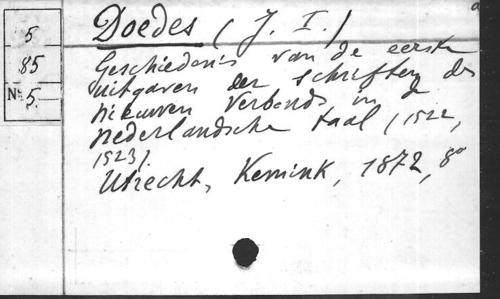 5
85
No 5
Doedes (J. I.)
Geschiedenis van de eerste
uitgaven der schriften des
nieuwen verbonds, in de
nederlandsche taal (1522,
1523).
Utrecht, Kemink, 1872, 8o